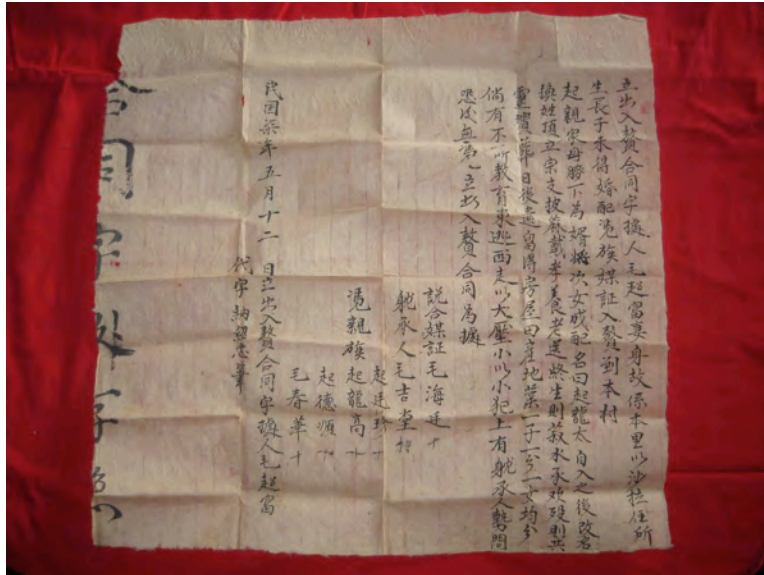 立出入贅合同字據人毛起富妻身故係本里以沙拉住所
生長子未得婚配憑族媒証入贅到本村
起親家母膝下為婿將次女成配名曰起龍太自入之後改名
換姓頂立宗支披麻戴孝養老送終生則菽水承欢殁則共
靈賣葬日後遺烏得房屋田產地業一子一分一女均分
倘有不听教育東逃西走以大壓小以小犯上有躭承人勢問
恐後無憑立出入贅合同為據
説合媒証毛海廷十
躭承人毛吉堂
起廷珍十
憑親族起龍高十
起德順
毛春華十
民囯柒年五月十二日立出入贅合同字據人毛起富
代字 納 忠筆
合同字